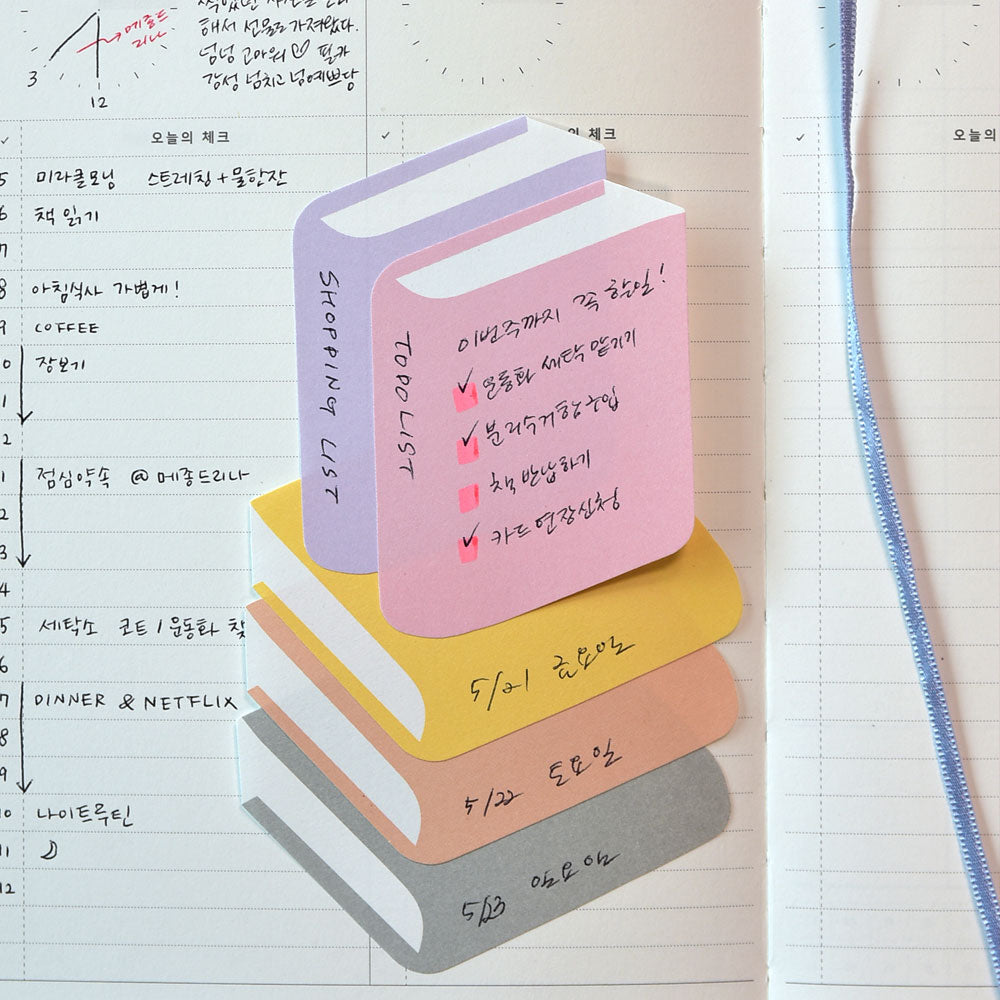 메종드
리나
3
12
해서 선물로 가져왔다.
넘넘 고마워♡ 필카
감성 넘치고 넘예쁘당
✓ 오늘의 체크
✓ 체크
✓ 오늘의
5 미라클모닝 스트레칭+물한잔
6 책 읽기
7
8 아침식사 가볍게!
9 COFFEE
0 장보기
1
2
1 점심약속 @메종드리나
2
3
4
5 세탁소 코트/운동화 찾
6
7 DINNER & NETFLIX
8
9
10 나이트루틴
11
12
SHOPPING LIST
TODO LIST
이번주까지 꼭 할일!
✓ 운동화 세탁 맡기기
✓ 분리수거함 구입
책 반납하기
✓ 카드 연장신청
5/21 금요일
5/22 토요일
5/23 일요일